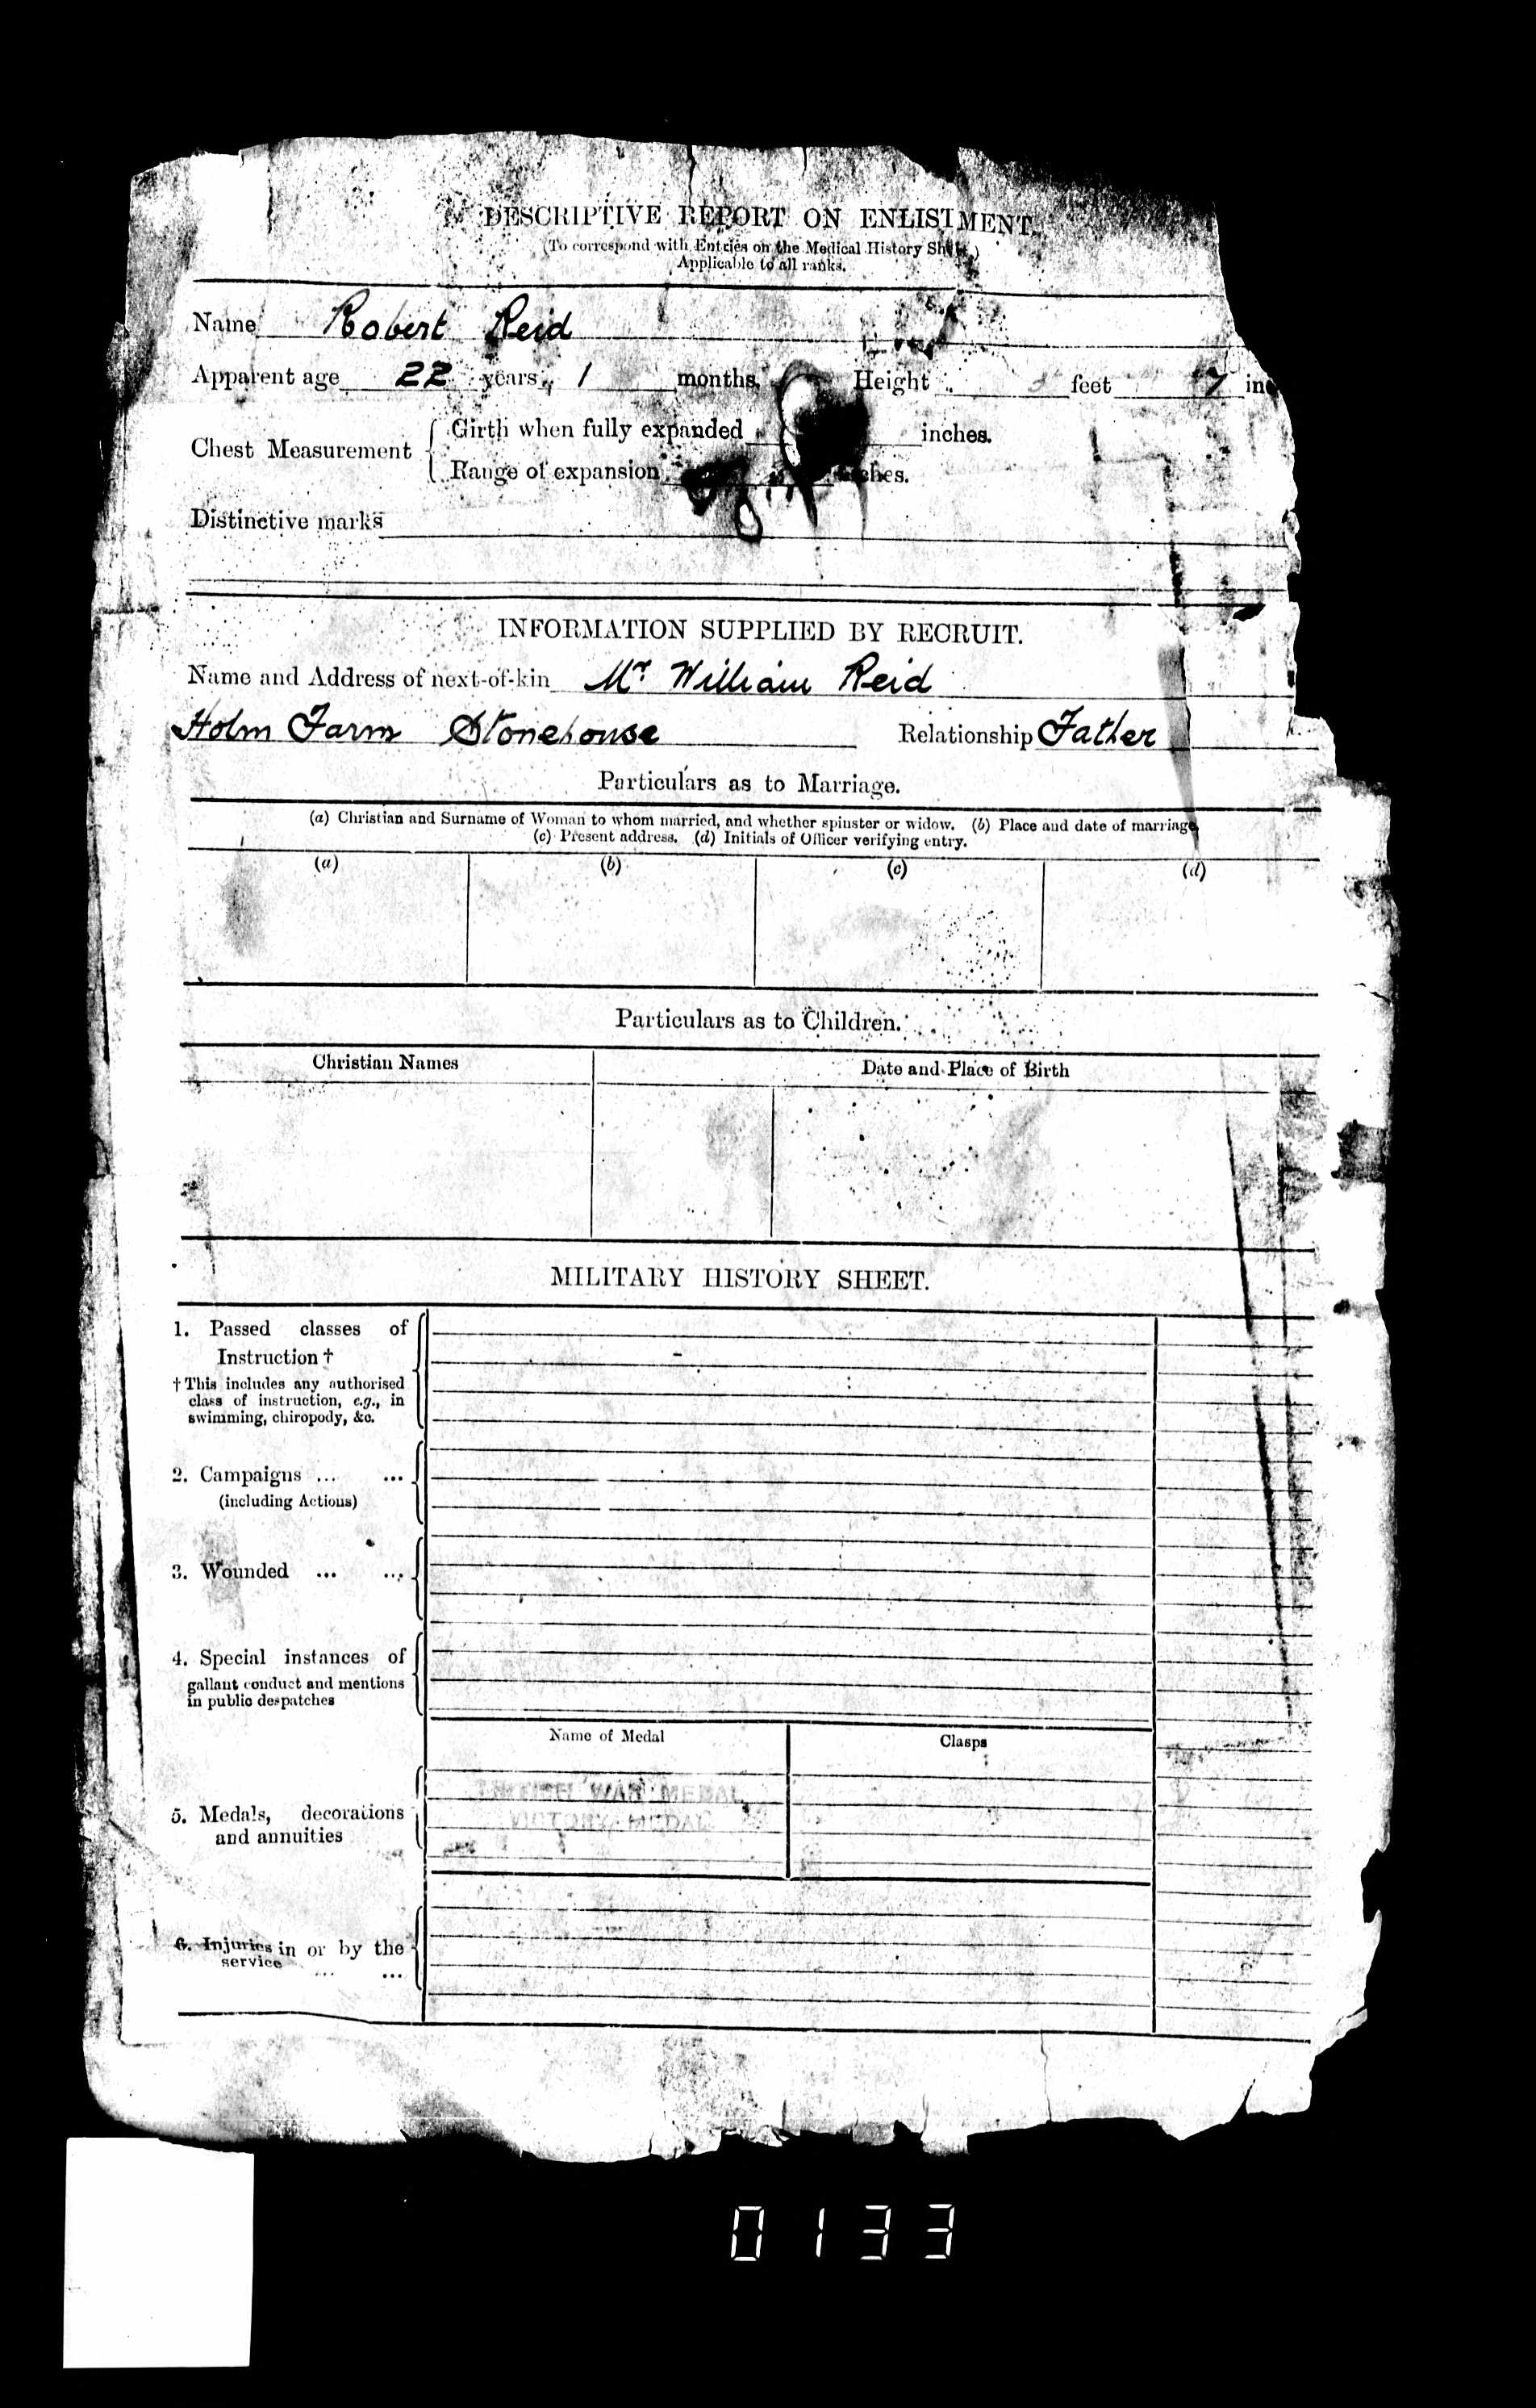 DESCRIPTIVE REPORT ON ENLISTMENT.
(To correspond with Entries on the Medical History Sheet.)
Applicable to all ranks.
Name Robert Reid
Apparent age 22 years 1 months. Height 5 feet 7 in
Chest Measurement { Girth when fully expanded inches.
Range of expansion inches.
Distinctive marks
INFORMATION SUPPLIED BY RECRUIT.
Name and Address of next-of-kin Mr William Reid
Holm Farm Stonehouse Relationship Father
Particulars as to Marriage.
(a) Christian and Surname of Woman to whom married, and whether spinster or widow. (b) Place and date of marriage
(c) Present address. (d) Initials of Officer verifying entry.
(a) (b) (c) (d)
Particulars as to Children.
Christian Names Date and Place of Birth
MILITARY HISTORY SHEET.
1. Passed classes of
Instruction †
† This includes any authorised
class of instruction, e.g., in
swimming, chiropody, &c.
2. Campaigns ... ...
(including Actions)
3. Wounded ... ...
4. Special instances of
gallant conduct and mentions
in public despatches
Name of Medal Clasps
BRITISH WAR MEDAL
VICTORY MEDAL
5. Medals, decorations
and annuities
6. Injuries in or by the
service ... ...
0133